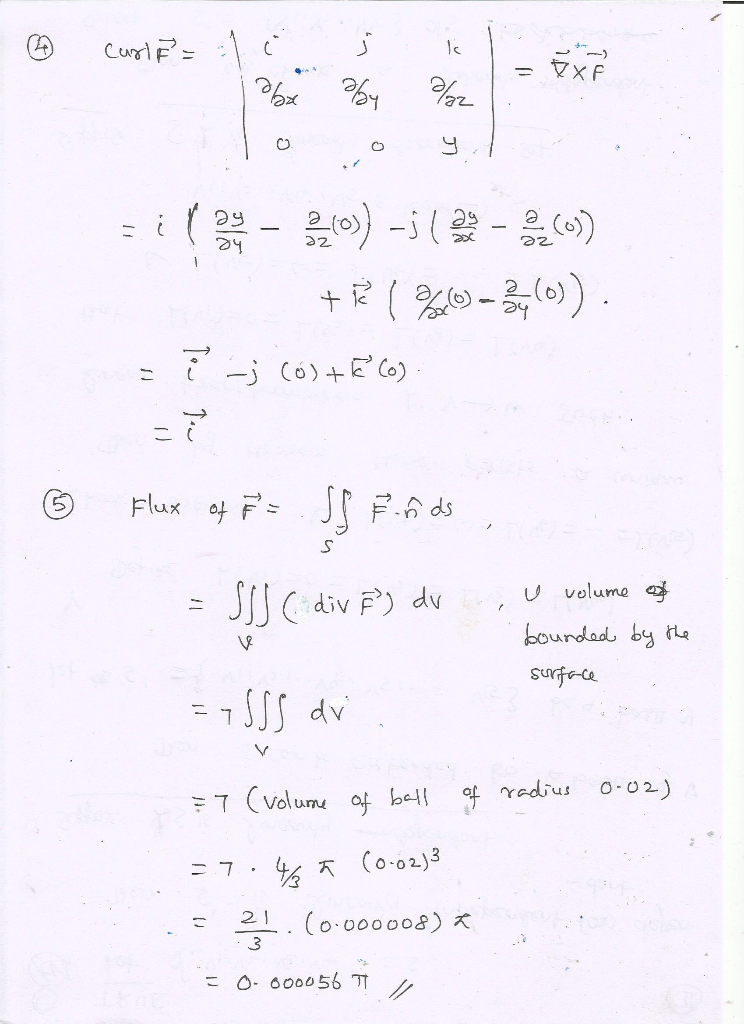 ④ Curl F⃗ = | i j k | = ∇⃗ × F⃗
| ∂/∂x ∂/∂y ∂/∂z |
| 0 0 y |
= i ( ∂y/∂y − ∂/∂z (0) ) − j ( ∂y/∂x − ∂/∂z (0) )
+ k⃗ ( ∂/∂x (0) − ∂/∂y (0) ) .
= i⃗ − j (0) + k⃗ (0) .
= i⃗
⑤ Flux of F⃗ = ∬_S F⃗ . n̂ ds ,
= ∭_V ( div F⃗ ) dv , V volume
bounded by the
surface
= 7 ∭_V dv
= 7 (Volume of ball of radius 0.02)
= 7 . 4/3 π (0.02)3
= 21/3 . (0.000008) π
= 0.000056 π //